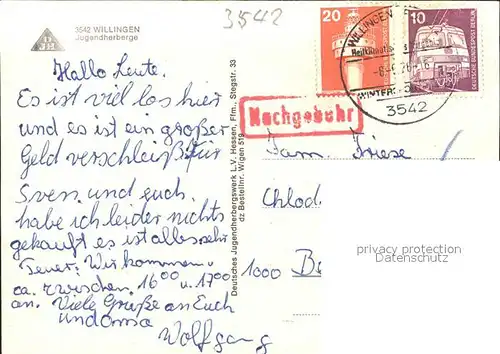 3542 WILLINGEN
Jugendherberge
3542
20
10
DEUTSCHE BUNDESPOST BERLIN
WILLINGEN
3542
Nachgebühr
Hallo Leute.
Es ist viel los hier
und es ist ein großer
Geld verschleiß für
Sven und euch
habe ich leider nichts
gekauft es ist alles sehr
Teuer. Wir kommen
ca. zwischen 16 00 u. 17 00
an. Viele Grüße an Euch
und Oma
Wolfgang
Deutsches Jugendherbergswerk L.V. Hessen, Ffm., Stegstr. 33
dz Bestellnr. Wigen 519
Fam. Friese
Chlod
1000 B
privacy protection
Datenschutz